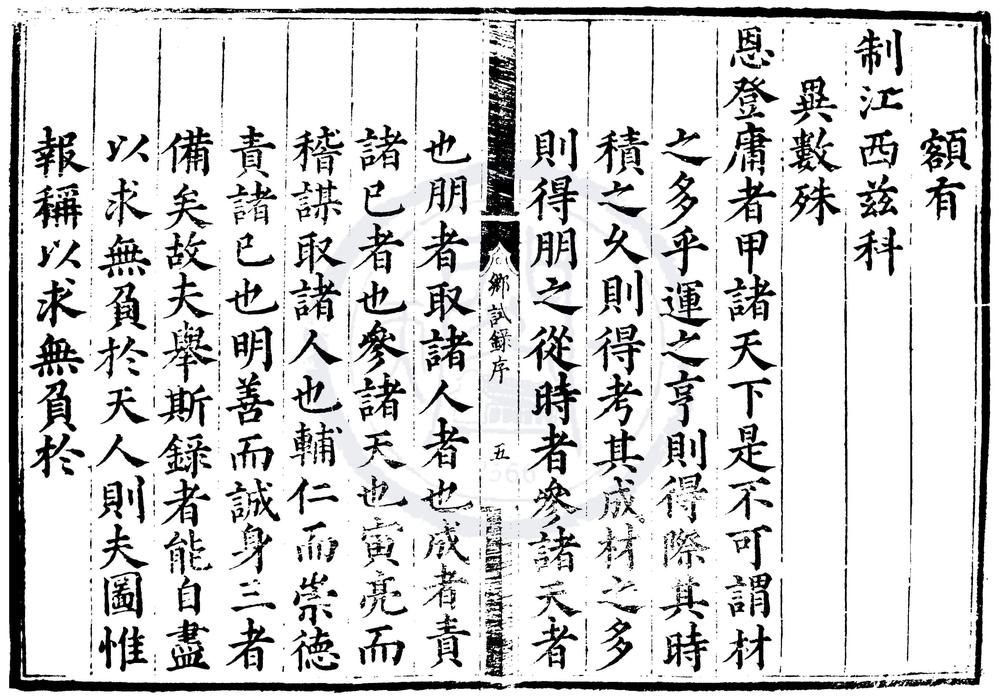 額有
制江西茲科
異數殊
恩登庸者甲諸天下是不可謂材
之多乎運之亨則得際其時
積之久則得考其成材之多
則得朋之從時者參諸天者
鄉試錄序
五
也朋者取諸人者也成者責
諸已者也參諸天也寅亮而
稽謀取諸人也輔仁而崇德
責諸已也明善而誠身三者
備矣故夫舉斯錄者能自盡
以求無負於天人則夫圖惟
報稱以求無負於